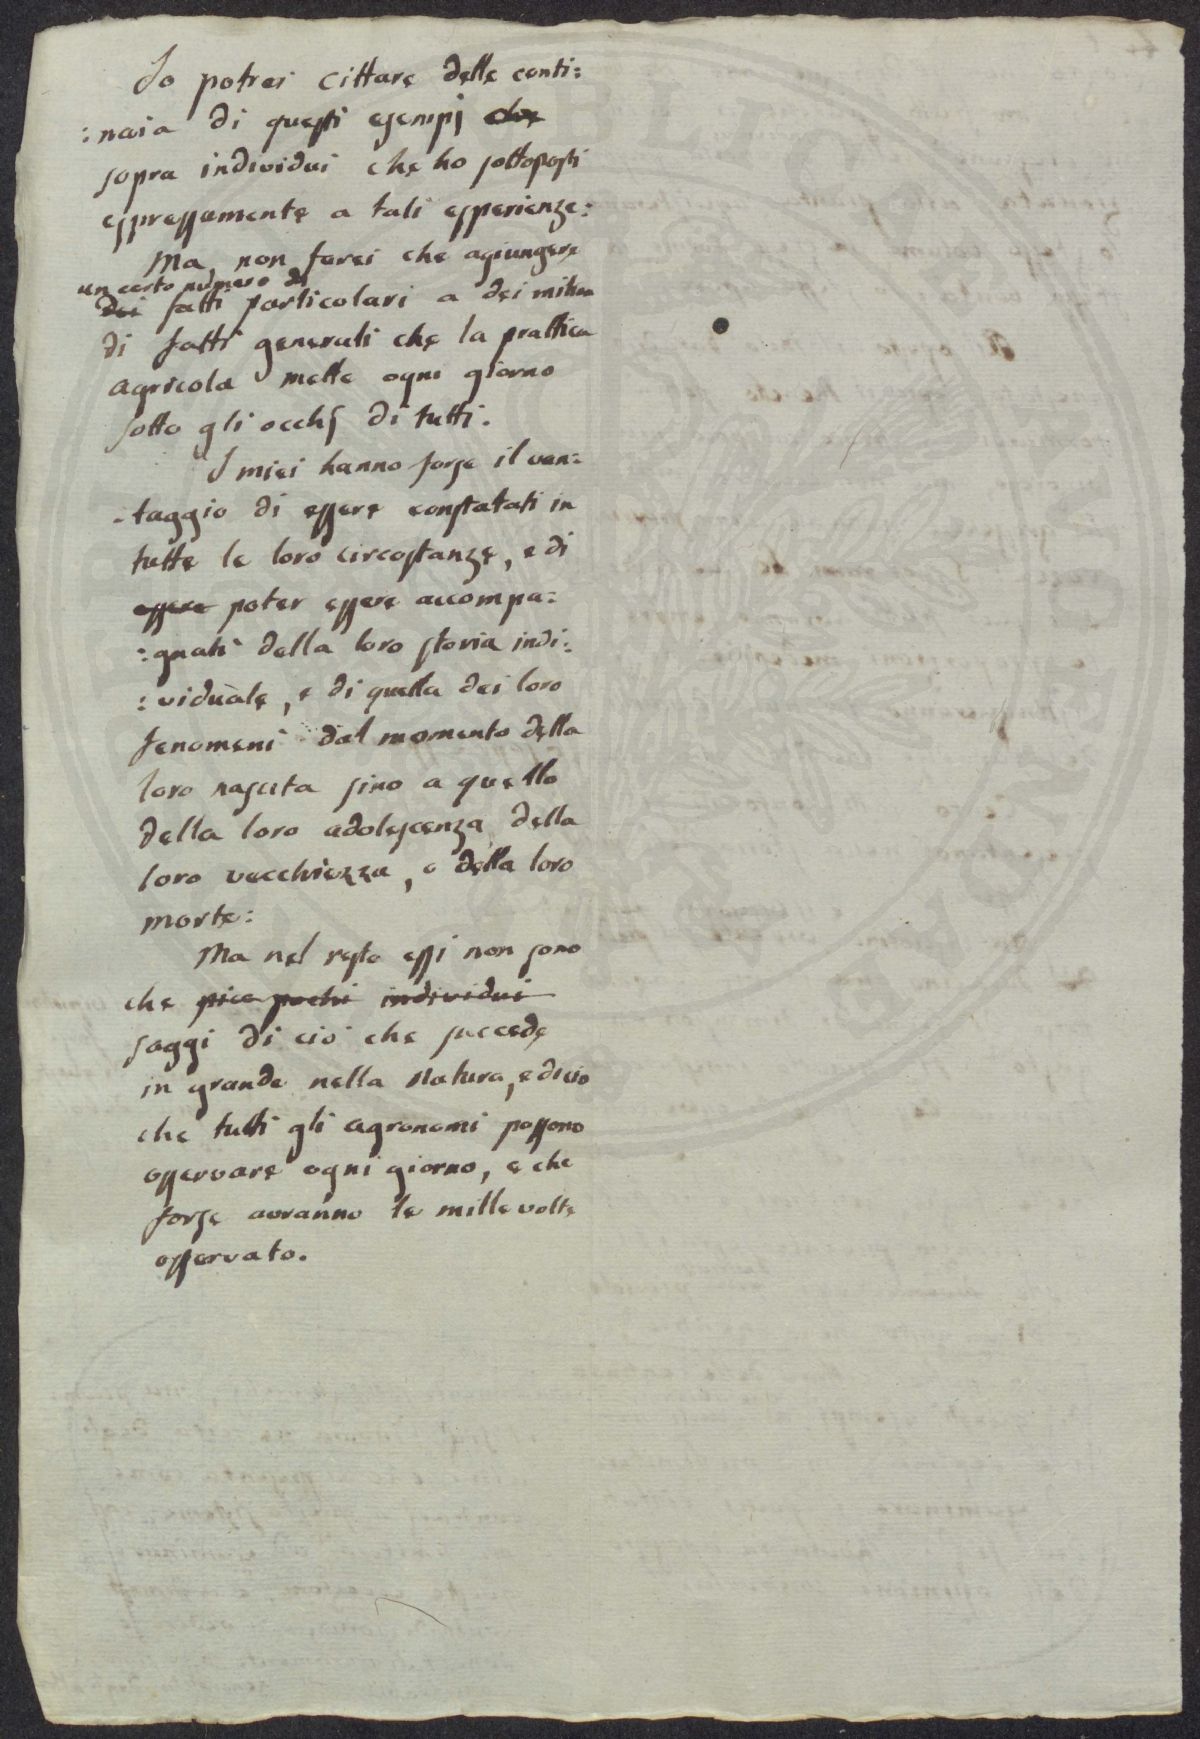 Io potrei cittare delle centi:
:naia di questi esempj che
sopra individui che ho sottoposti
espressamente a tali esperienze:
Ma, non farei che agiungere
un certo numero di
dei fatti particolari a dei miliaa
di fatti generali che la prattica
agricola mette ogni giorno
sotto gli occhj di tutti.
I miei hanno forse il van:
-taggio di essere constatati in
tutte le loro circostanze, e di
essere poter essere accompa:
:gnati della loro storia indi:
:viduale, e di quella dei loro
fenomeni dal momento della
loro nascita sino a quello
della loro adolescenza della
loro vecchiezza, e della loro
morte:
Ma nel resto essi non sono
che pochi individui
saggi di ciò che succede
in grande nella Natura, e di ciò
che tutti gli agronomi possono
osservare ogni giorno, e che
forse avranno le mille volte
osservato.